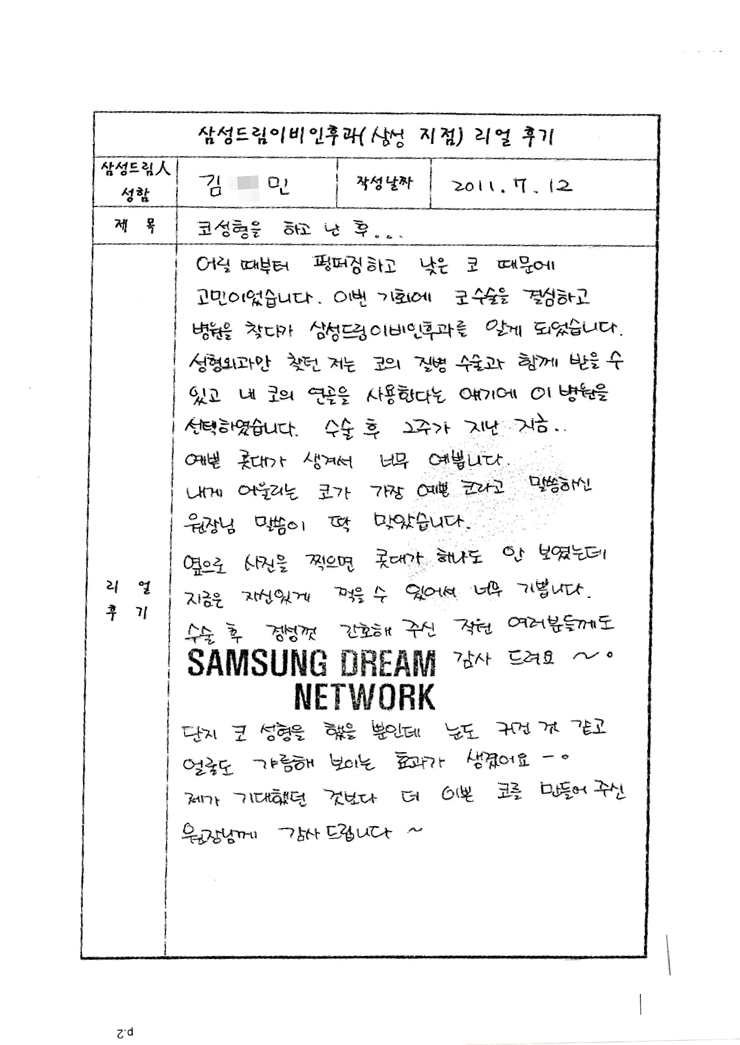 삼성드림이비인후과(삼성 지점) 리얼 후기
삼성드림人 성함
김 민
작성날짜
2011. 7. 12
제 목
코성형을 하고 난 후...
리 얼 후 기
어릴 때부터 펑퍼짐하고 낮은 코 때문에
고민이었습니다. 이번 기회에 코수술을 결심하고
병원을 찾다가 삼성드림이비인후과를 알게 되었습니다.
성형외과만 찾던 저는 코의 질병 수술과 함께 받을 수
있고 내 코의 연골을 사용한다는 얘기에 이 병원을
선택하였습니다. 수술 후 2주가 지난 지금..
예쁜 콧대가 생겨서 너무 예쁩니다.
내게 어울리는 코가 가장 예쁜 코라고 말씀하신
원장님 말씀이 딱 맞았습니다.
옆으로 사진을 찍으면 콧대가 하나도 안 보였는데
지금은 자신있게 찍을 수 있어서 너무 기쁩니다.
수술 후 정성껏 간호해 주신 직원 여러분들께도
감사 드려요 ~。
SAMSUNG DREAM
NETWORK
단지 코 성형을 했을 뿐인데 눈도 커진 것 같고
얼굴도 갸름해 보이는 효과가 생겼어요 -。
제가 기대했던 것보다 더 이쁜 코를 만들어 주신
원장님께 감사 드립니다 ~
p.2